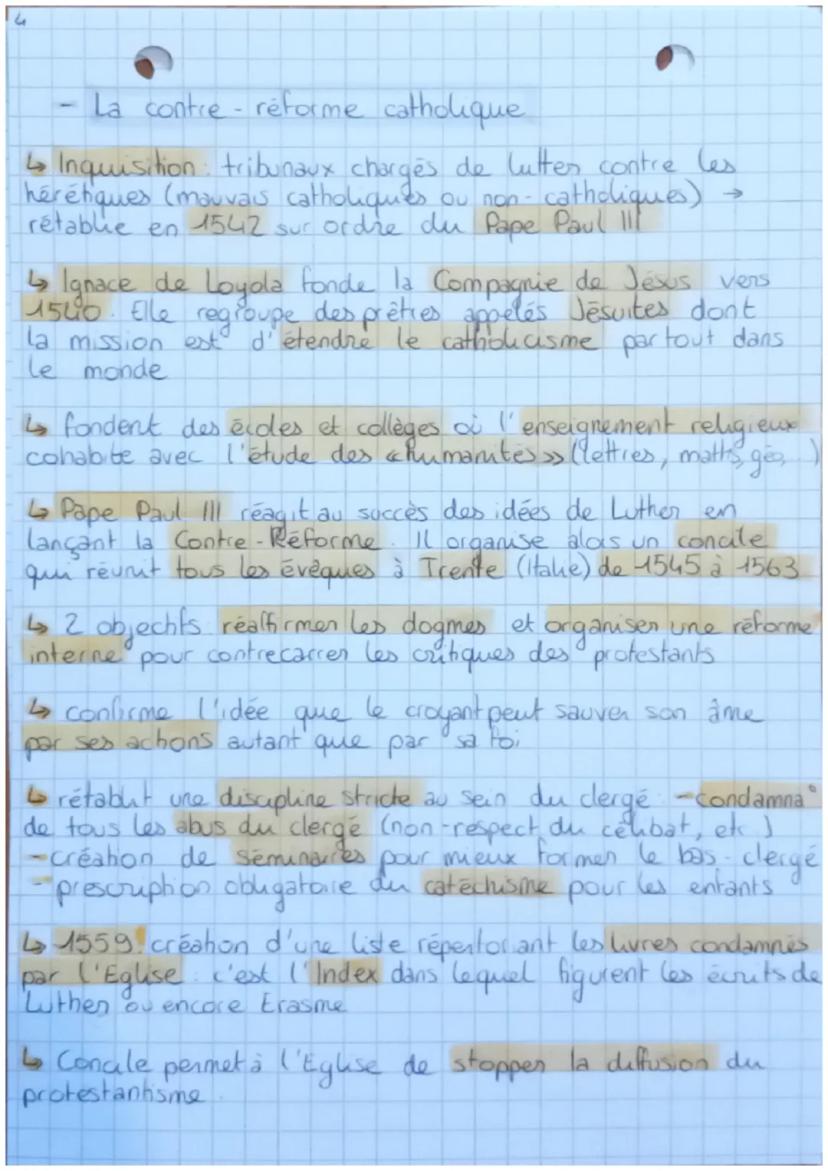 4
- La contre-réforme catholique
↳ Inquisition : tribunaux chargés de lutter contre les
hérétiques (mauvais catholiques ou non-catholiques) →
rétablie en 1542 sur ordre du Pape Paul III
↳ Ignace de Loyola fonde la Compagnie de Jésus vers
1540. Elle regroupe des prêtres appelés Jésuites dont
la mission est d'étendre le catholicisme partout dans
le monde
↳ fondent des écoles et collèges où l'enseignement religieux
cohabite avec l'étude des «humanités» (lettres, maths, géo, )
↳ Pape Paul III réagit au succès des idées de Luther en
lançant la Contre-Réforme. Il organise alors un concile
qui réunit tous les évêques à Trente (Italie) de 1545 à 1563
↳ 2 objectifs réaffirmer les dogmes et organiser une réforme
interne pour contrecarrer les critiques des protestants
↳ confirme l'idée que le croyant peut sauver son âme
par ses actions autant que par sa foi
↳ rétablit une discipline stricte au sein du clergé : - condamna°
de tous les abus du clergé (non-respect du célibat, etc)
- création de séminaires pour mieux former le bas-clergé
- prescription obligatoire du catéchisme pour les enfants
↳ 1559 : création d'une liste répertoriant les livres condamnés
par l'Eglise : c'est l'Index dans lequel figurent les écrits de
Luther ou encore Erasme
↳ Concile permet à l'Eglise de stopper la diffusion du
protestantisme.